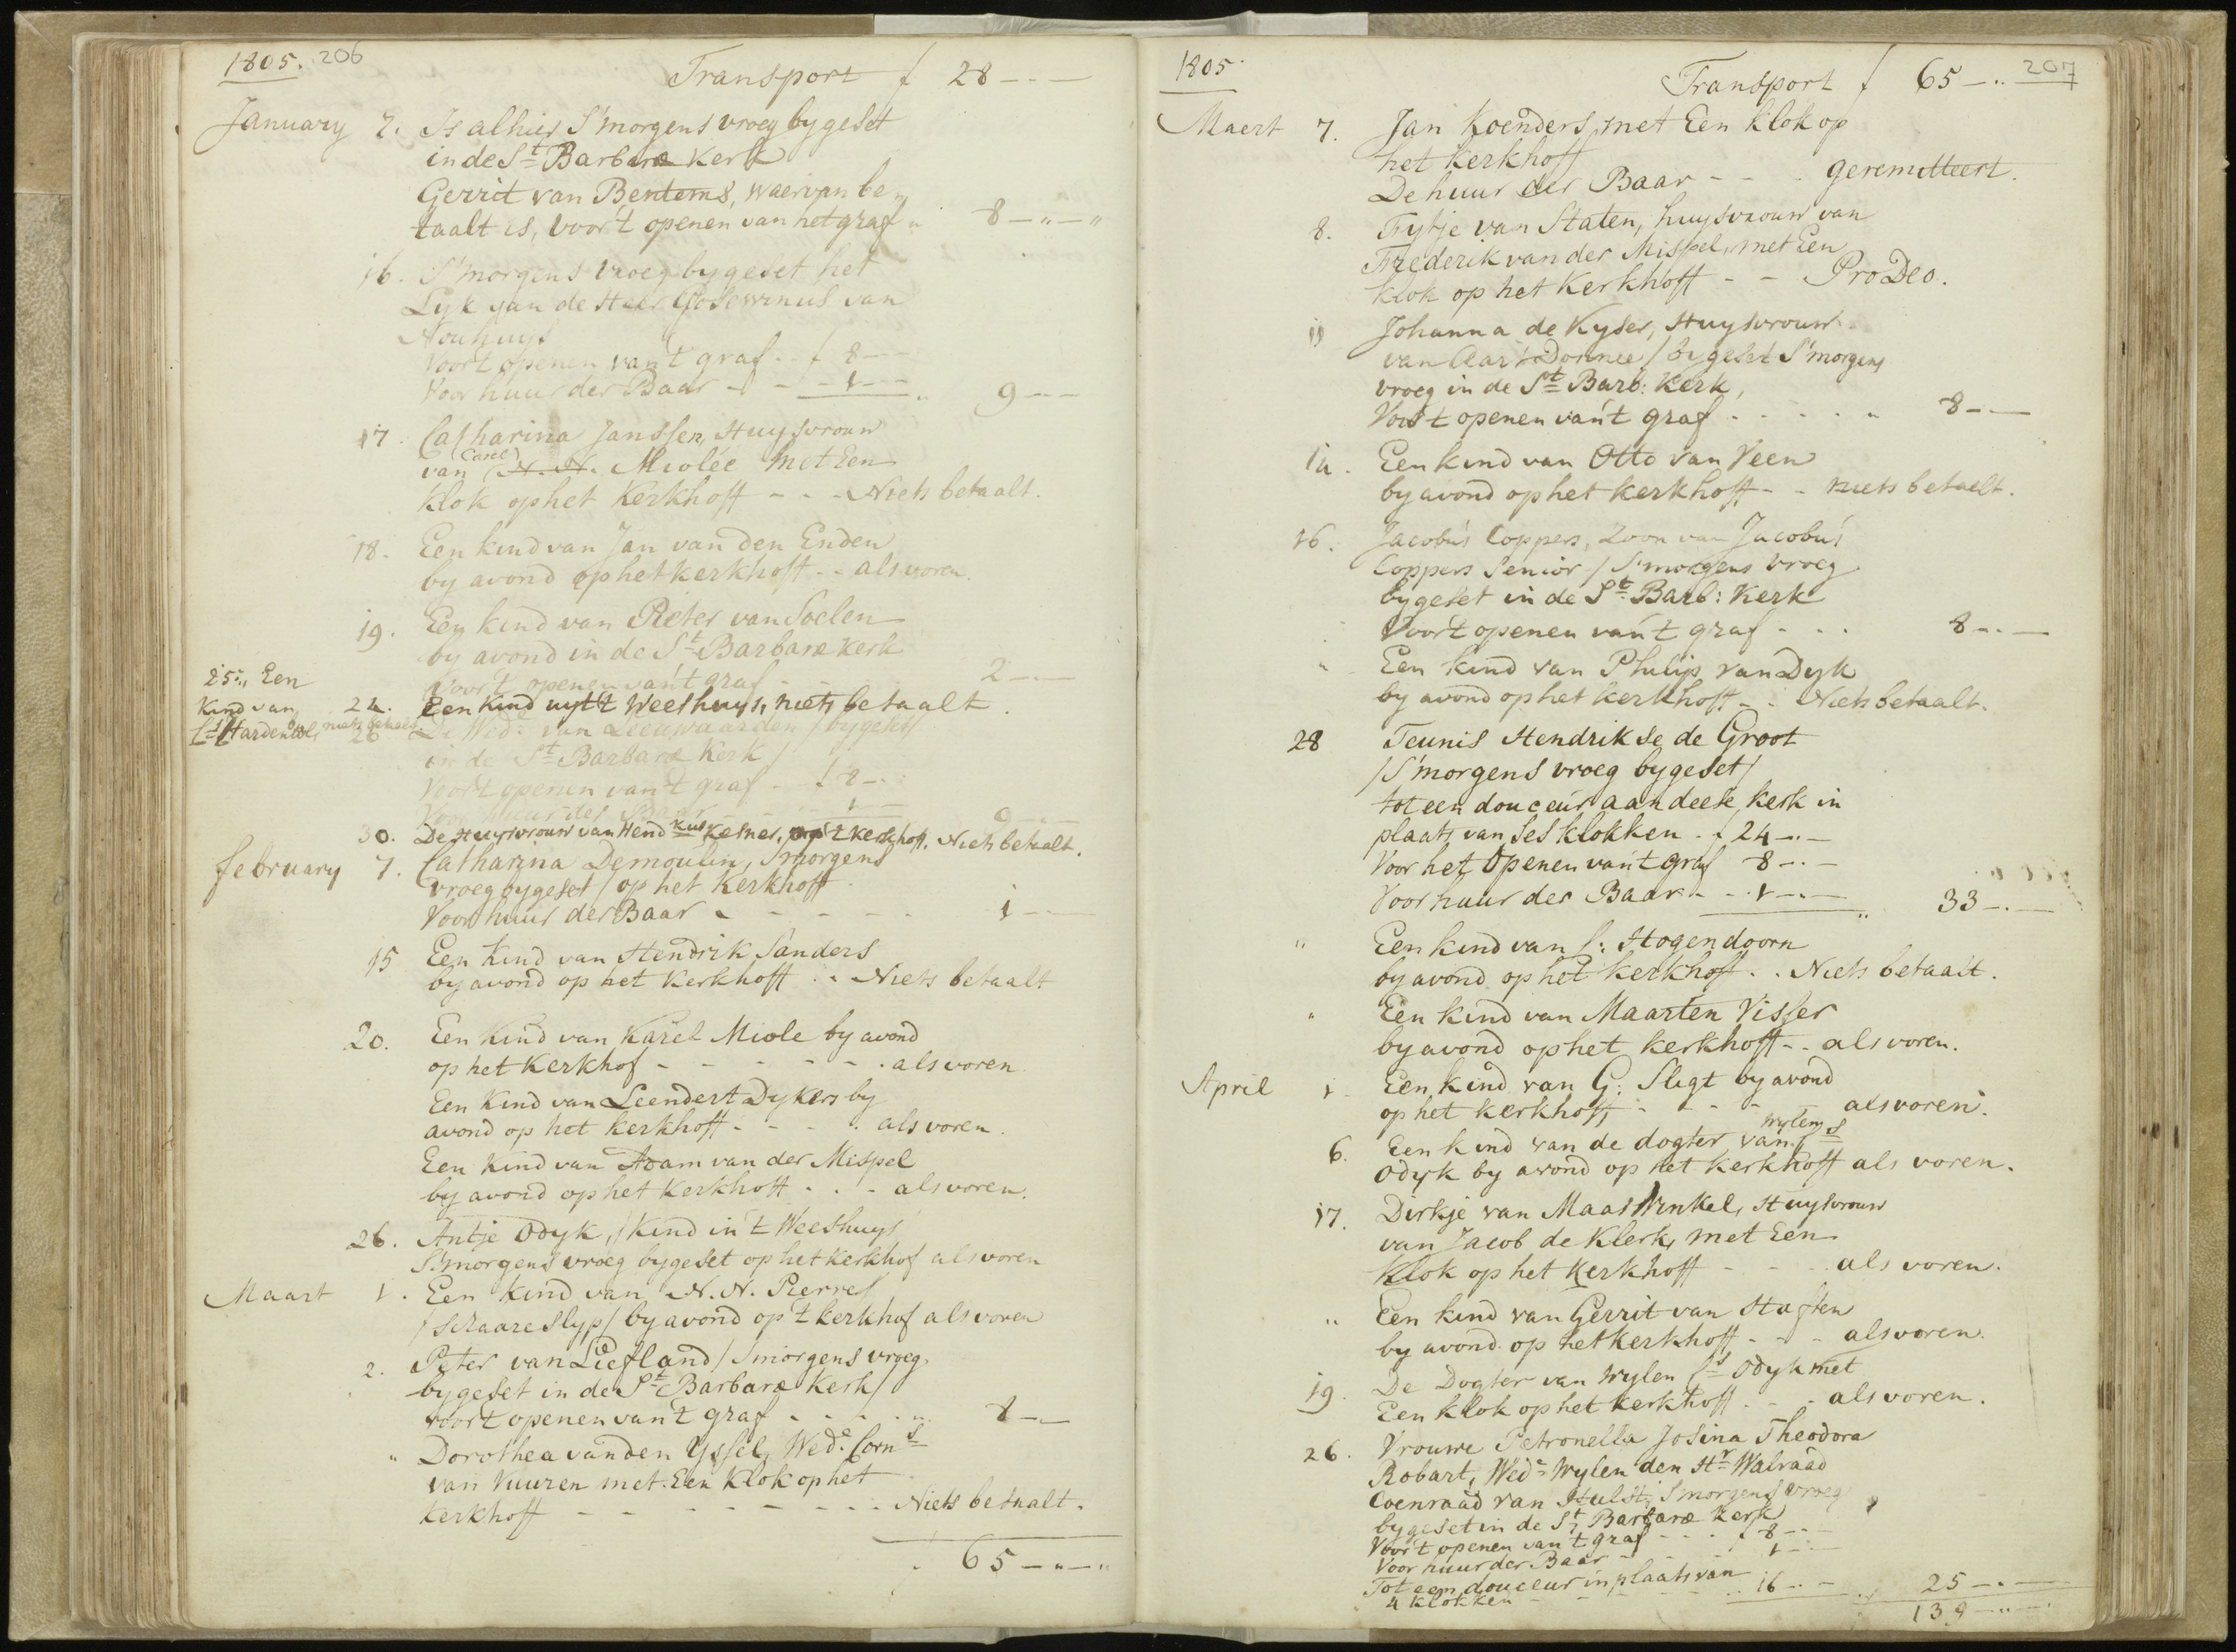 1805. 206
Transport f 28 -.-
January 7. Is alhier S'morgens vroeg bygeset
in de St Barbaræ Kerk
Gerrit van Bentems, waervan be-
taalt is, voor 't openen van het graf 8 -"-"
16. S'morgens vroeg bygeset het
Lyk van de Heer Gosewinus van
Nouhuys
Voor 't openen van 't graf .. f 8 -.-
Voor huur der Baar - - - 1 -.- 9 -.-
17. Catharina Janssen, Huysvrouw
van (Carel) N. N. Miolée met Een
klok op het Kerkhoff - - - Niets betaalt.
18. Een kind van Jan van den Enden
by avond op het kerkhoff - - als voren.
19. Een kind van Pieter van Soelen
by avond in de St Barbaræ kerk
Voor 't openen van 't graf - - - 2 -.-
24. Een Kind uyt 't Weeshuys, niets betaalt.
25:, Een
Kind van
Hardenbol, niets betaelt
26 De Wede van Leeuwaarden / bygeset
in de St Barbaræ Kerk /
Voor 't openen van 't graf - f 8 -.
Voor huur der Baar - 1 - 9 -.-
30. De Huysvrouw van Hend Kuse Kesner, op 't kerkhoff. Niets betaalt.
february 7. Catharina Demoulin, Smorgens
vroeg bygeset / op het Kerkhoff
Voor huur der Baar - - - - - 1 -.-
15 Een Kind van Hendrik Sanders
by avond op het Kerkhoff .. Niets betaalt
20. Een Kind van Karel Miole by avond
op het Kerkhof - - - - - - als voren.
Een Kind van Leendert Dykers by
avond op het kerkhoff - - - . als voren.
Een Kind van Adam van der Mispel
by avond op het Kerkhoff . . - als voren.
26. Antje Odyk, / Kind in 't Weeshuys
S'morgens vroeg bygeset op het kerkhof als voren
Maart 1. Een kind van N. N. Pierre
/ schaareslyp / by avond op 't kerkhof als voren
2. Peter van Liefland / Smorgens vroeg
bygeset in de St Barbaræ Kerk /
voor 't openen van 't graf - - - - 8 -.-
" Dorothea van den Yssel, Wede Corns
van Vuuren met Een Klok op het
kerkhoff - - - - - - - - Niets betaalt.
65 -"-"
1805. 207
Transport f 65 -..
Maert 7. Jan Koenders, met Een klok op
het kerkhoff
De huur der Baar - - . geremitteert.
8. Fytje van Staten, huysvrouw van
Frederik van der Mispel, met Een
klok op het Kerkhoff - - Pro Deo.
11 Johanna de Kyser, Huysvrouw
van Aart Donnee / bygeset S'morgens
vroeg in de St Barb: Kerk,
Voor 't openen van 't graf . - . - . - 8 -.-
14. Een kind van Otto van Veen
by avond op het kerkhoff - - niets betaelt.
16. Jacobus Coppers, Zoon van Jacobus
Coppers Senior / S'morgens vroeg
bygeset in de St Barb: Kerk
Voor 't openen van 't graf - . . 8 -.-
" Een kind van Philip van Dyk
by avond op het kerkhoff - . Niets betaalt.
28 Teunis Hendrikse de Groot
/ S'morgens vroeg bygeset /
tot een douceur aan deese kerk in
plaats van ses klokken - f 24 -.-
Voor het openen van 't graf 8 -.-
Voor huur der Baar - - 1 -.- 33 -.-
" Een kind van C: Hogendoorn
by avond op het kerkhoff . . Niets betaalt.
" Een kind van Maarten Visser
by avond op het kerkhoff - . als voren.
April 1. Een kind van G: Sligt by avond
op het kerkhoff, - - - - als voren.
6. Een kind van de dogter van wylen Cs
Odyk by avond op het kerkhoff als voren.
17. Dirkje van Maaswinkel, Huysvrouw
van Jacob de Klerk, met Een
klok op het kerkhoff - - . als voren.
" Een kind van Gerrit van Haften
by avond op het kerkhoff - - - als voren.
19. De Dogter van wylen Cs Odyk met
Een klok op het kerkhoff . - . als voren.
26. Vrouwe Petronella Josina Theodora
Robart, Wede wylen den Hr Walraad
Coenraad van Hulst, Smorgens vroeg
bygeset in de St Barbaræ Kerk
Voor 't openen van 't graf - - - f 8 -.-
Voor huur der Baar - - - 1 -.-
Tot een douceur in plaats van
4 klokken - - - 16 -.- 25 -.-
139 -"-